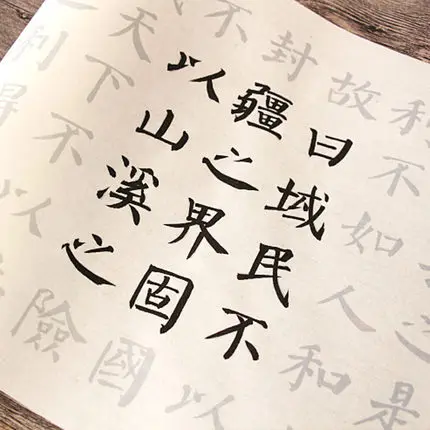 之是
利不如人和
故曰域民不以
封疆之界固國
不以山溪之險
天下不以
利得